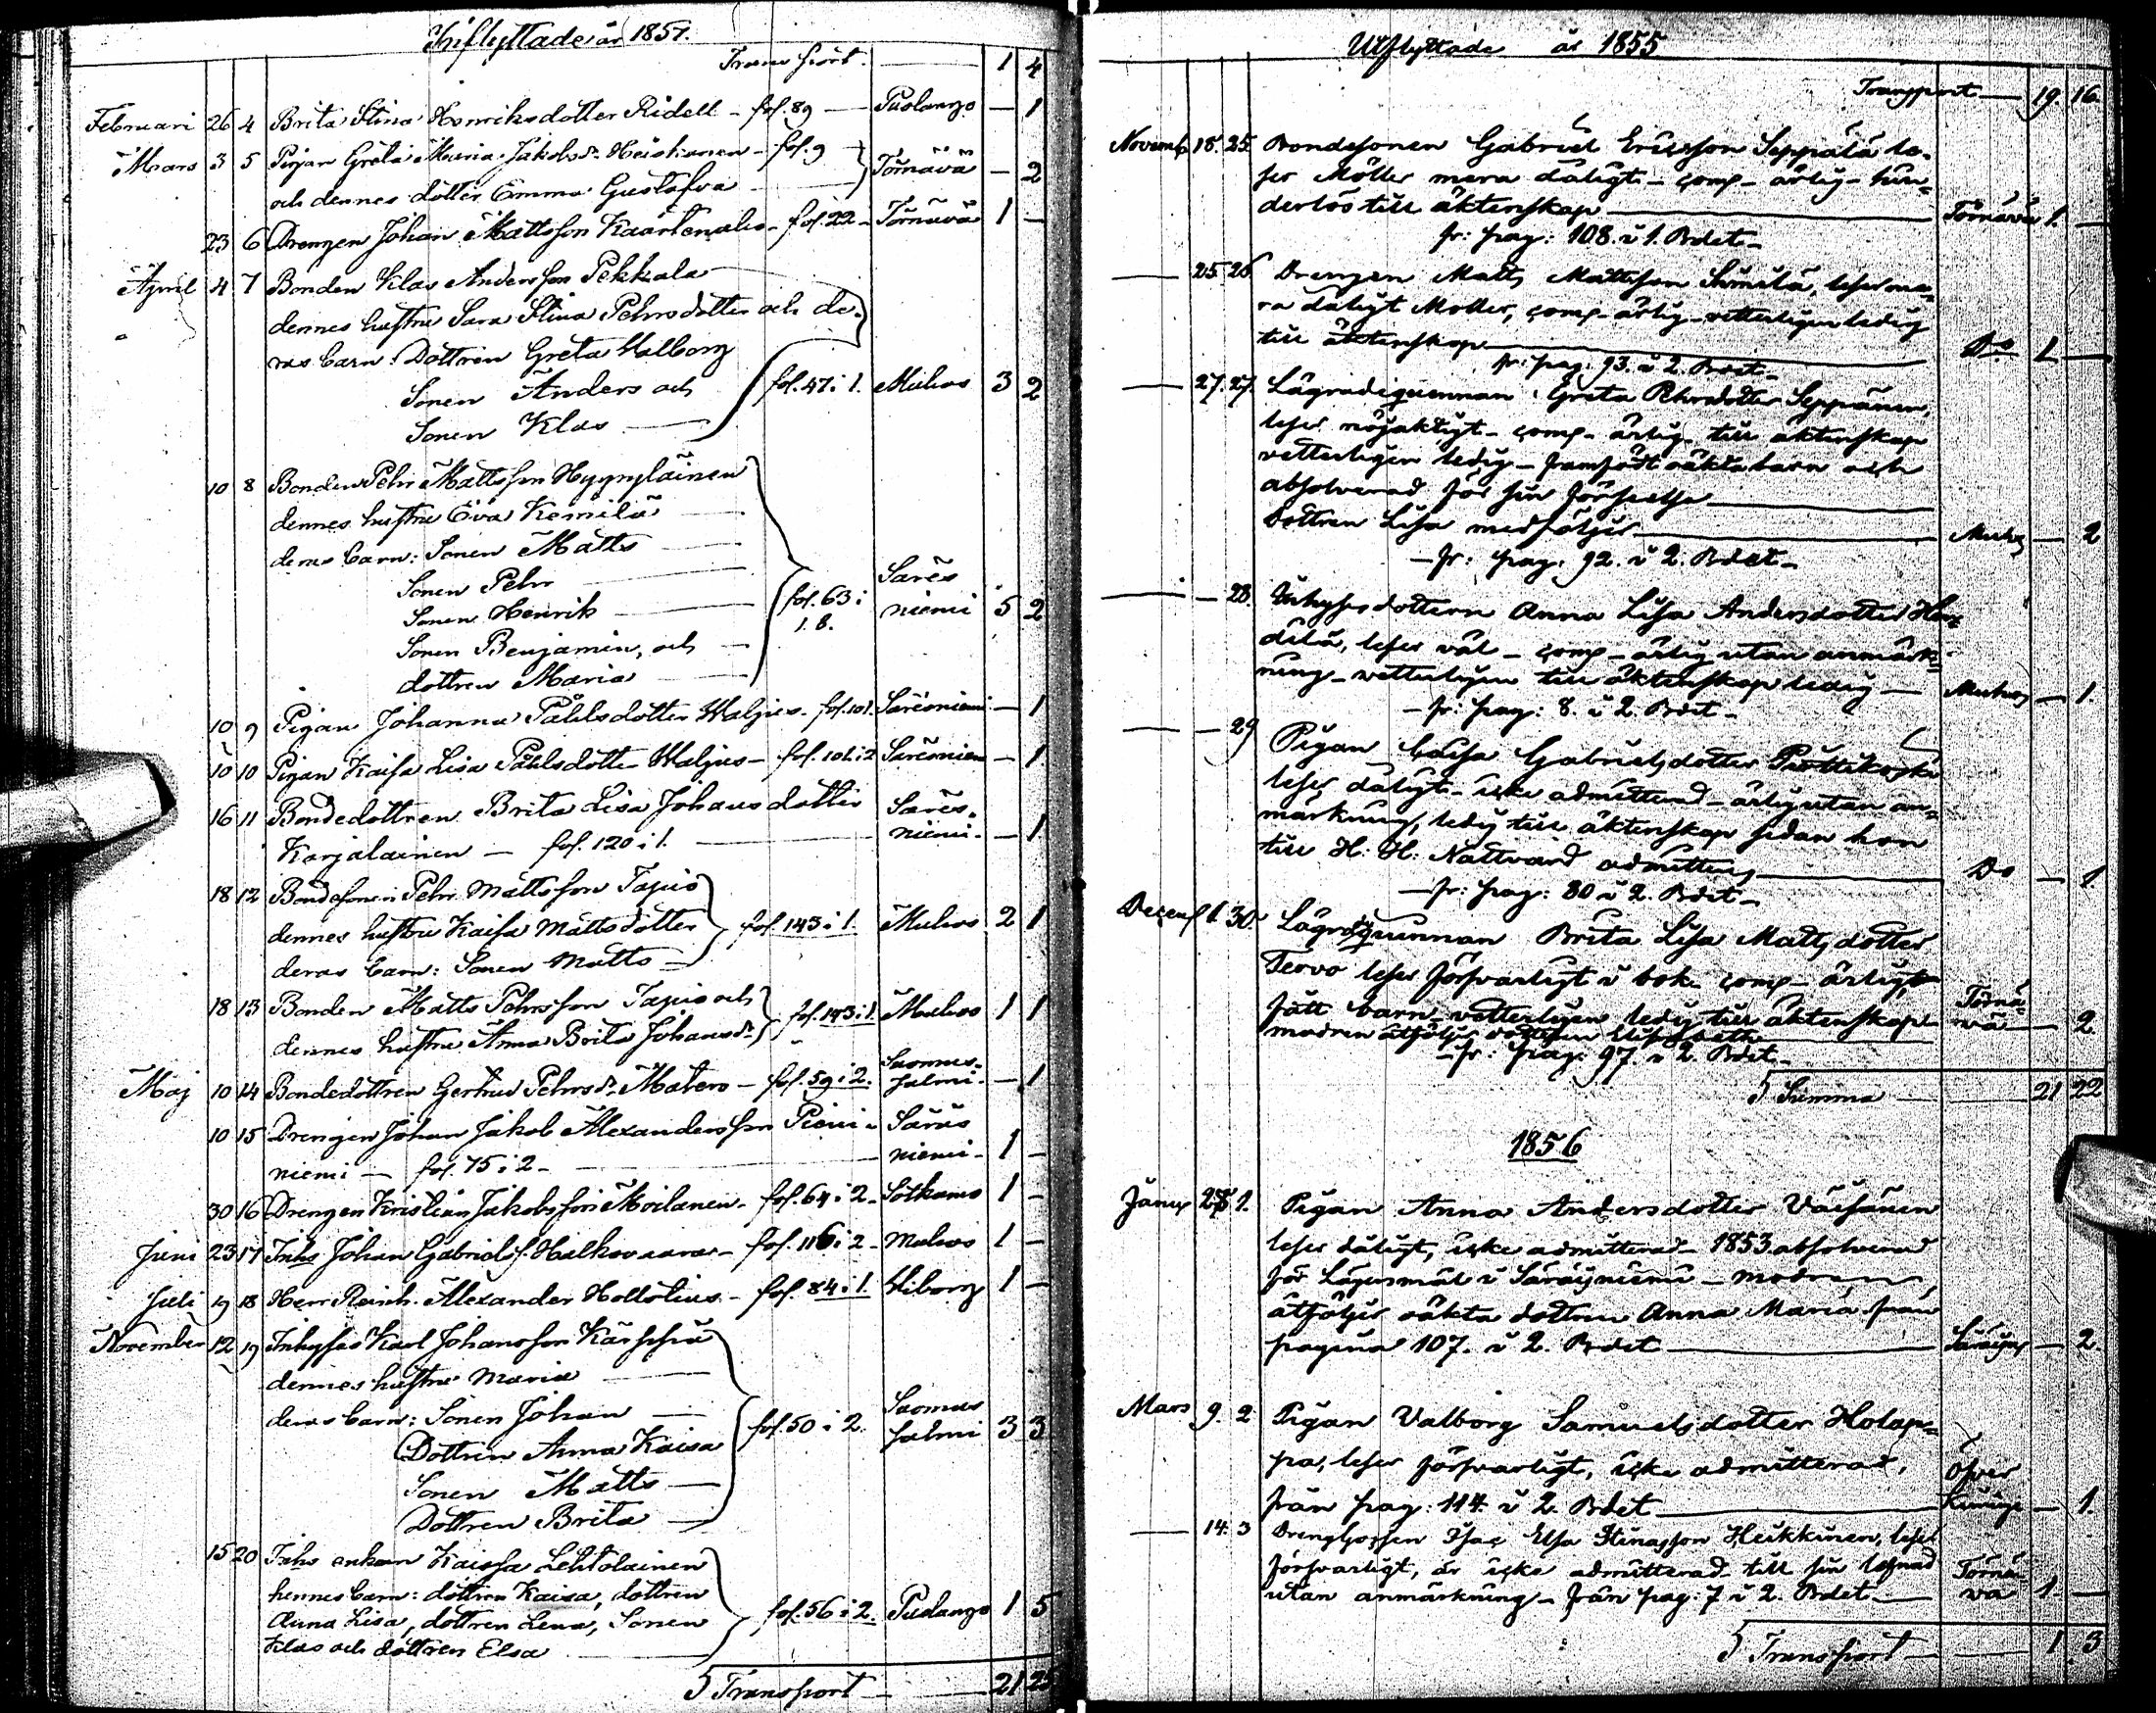 Inflyttade år 1857.
Transport. 1 4
Februari 26 4 Brita Stina Henriksdotter Ridell - fol. 89 — Pudango — 1
Mars 3 5 Pigan Greta Maria Jakobsdr Heiskanen - fol. 9
och dennes dotter Emma Gustafva — Törnävä — 2
23 6 Drengen Johan Mattsson Kaartenaho - fol. 22 - Törnävä 1 —
April 4 7 Bonden Klas Andersson Pekkala
dennes hustru Sara Stina Pehrsdotter och de-
ras barn: Dottren Greta Walborg
Sonen Anders och fol. 47 i 1. Muhos 3 2
Sonen Klas —
10 8 Bonden Pehr Mattsson Hyynyläinen
dennes hustru Eva Kemilä —
deras barn: Sonen Matts —
Sonen Pehr —
Sonen Henrik — fol. 63 i 1. B. Säres niemi 5 2
Sonen Benjamin, och —
dottren Maria —
10 9 Pigan Johanna Påhlsdotter Waljus - fol. 101. Säresniemi — 1
10 10 Pigan Kaisa Lisa Påhlsdotter Waljus - fol. 101 i 2 Säresniemi — 1
16 11 Bondedottren Brita Lisa Johansdotter Säres-
Karjalainen — fol. 120 i 1. — niemi - — 1
18 12 Bondesonen Pehr Mattsson Tapio
dennes hustru Kaisa Mattsdotter fol. 143 i 1. Muhos 2 1
deras barn: Sonen Matts —
18 13 Bonden Matts Pehrsson Tapio och fol. 143 i 1. Muhos 1 1
dennes hustru Anna Brita Johansdr
Maj 10 14 Bondedottren Gertrud Pehrsdr Matero - fol. 59 i 2. Suomus-salmi - — 1
10 15 Drengen Johan Jakob Alexandersson Pieni- Säräs
niemi — fol. 75 i 2 — niemi - 1 —
30 16 Drengen Kristian Jakobsson Moilanen - fol. 64 i 2 - Sotkamo 1 —
Juni 23 17 Inhs Johan Gabriels. Halkovaara - fol. 116 i 2 - Muhos 1 —
Juli 19 18 Herr Reinh. Alexander Hollotius - fol. 84 i 1. Wiborg 1 —
November 12 19 Inhyses Karl Johansson Kärppä
dennes hustru Maria —
deras barn: Sonen Johan —
Dottren Anna Kaisa fol. 50 i 2. Suomus salmi 3 3
Sonen Matts —
Dottren Brita —
15 20 Inhs enkan Kaisa Lehtolainen
hennes barn: dottren Kaisa, dottren
Anna Lisa, dottren Lena, Sonen fol. 56 i 2. Pudango 1 5
Klas och dottren Elsa —
Transport — 21 25
Utflyttade år 1855
Transport — 19. 16.
Novemb 18. 25. Bondesonen Gabriel Ericsson Seppälä lä-
ser Möller mera dåligt - comp - ärlig - hin-
derlös till äktenskap — Törnävä 1. —
fr: pag: 108. i 1. Bdet -
— 25. 26 Drengen Matts Mattsson läser me-
ra dåligt Möller, comp - ärlig - vetterligen ledig
till äktenskap — Do 1 —
fr: pag: 93. i 2. Bdet -
— 27. 27. Lägradeqvinnan Greta Pehrsdotter Seppänen,
läser nöjaktigt - comp - ärlig - till äktenskap
vetterligen ledig - framfödt oäkta barn och
absolverad för sin förseelse —
dottren Lisa medföljer — Muhos — 2
— fr: pag: 92. i 2. Bdet -
— 28. Inhysesdottern Anna Lisa Andersdotter
läser väl - comp - ärlig utan anmärk-
ning - vetterligen till äktenskap ledig — Muhos — 1.
— fr: pag: 8. i 2. Bdet -
— 29 Pigan Caisa Gabrielsdotter Puottikoski
läser dåligt - icke admitterad - ärlig utan an-
märkning, ledig till äktenskap sedan hon
till H. H. Nattvard admitteras — Do — 1.
— fr: pag: 80 i 2. Bdet -
Decemb 1. 30. Lägradqvinnan Brita Lisa Mattsdotter
Tervo läser försvarligt i bok - comp - ärligt
fått barn - vetterligen ledig till äktenskap Törnä-
modren åtföljer dottren Elisabeth vä — 2
— fr: pag: 97. i 2. Bdet -
Summa — 21 22
1856
Januar 28 1. Pigan Anna Andersdotter Väisänen
läser dåligt, icke admitterad - 1853 absolverad
för Lägersmål i Säräisniemi - modren
åtföljer oäkta dottren Anna Maria från
pagina 107. i 2. Bdet — Säräisn — 2.
Mars 9. 2 Pigan Valborg Samuelsdotter Holap-
pa, läser försvarligt, icke admitterad, Öfver
från pag: 114. i 2. Bdet — Kiminge — 1.
— 14. 3 Drenggossen Isac Elsa Stinasson Heikkinen, läser
försvarligt, är icke admitterad till sin lefnad Törnä-
utan anmärkning - från pag: 7 i 2. Bdet — vä 1 —
Transport — 1 3